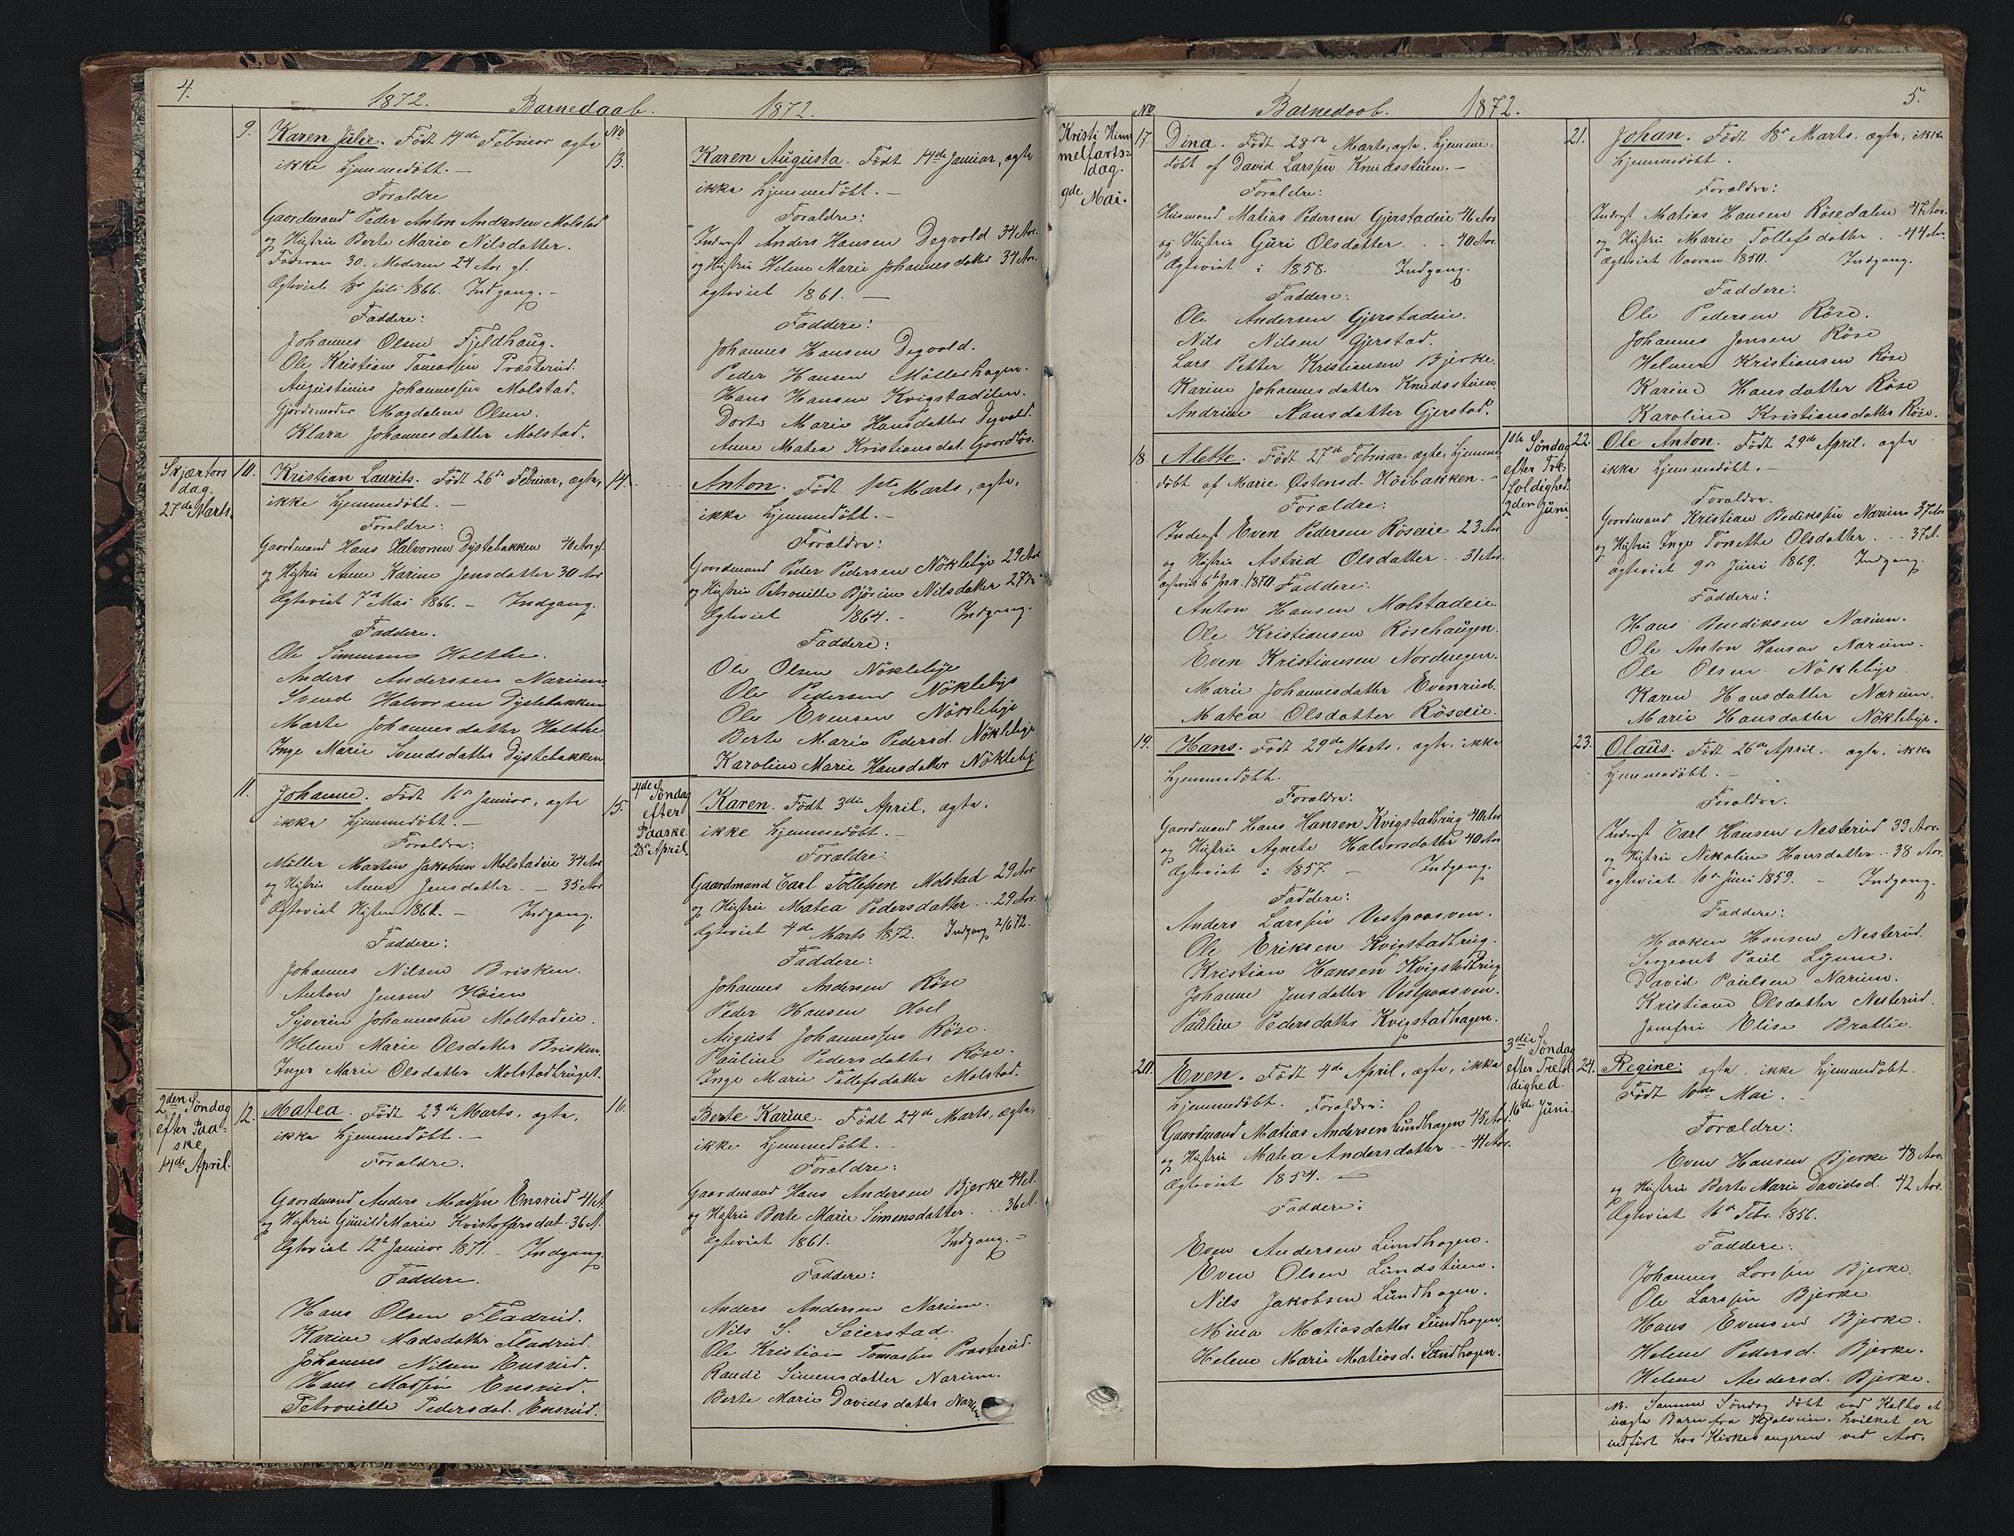 4.
1872. Barnedaab. 1872.
9. Karen Julie. Födt 14de Februar ægte
ikke hjemmedöbt. —
Foraldre
Gaardmand Peder Anton Andersen Molstad
og Hustru Berte Marie Nilsdatter.
Faderen 30. Moderen 24 Aar gl.
Ægteviet 18de Juli 1866. Indgang. –
Faddere:
Johannes Olsen Fjeldhaug.
Ole Kristian Tomassen Præsterud.
Augustinus Johannessen Molstad.
Gjordemoder Magdalene Olsen.
Klara Johannesdatter Molstad.
Skjærtors
dag.
27de Marts.
10. Kristian Laurits. Födt 26de Februar, ægte,
ikke hjemmedöbt. —
Foraldre:
Gaardmand Hans Halvorsen Dystebakken 40 Aar gl.
og Hustru Anne Karine Jensdatter 30 Aar
Ægteviet 7de Mai 1866. – Indgang.
Faddere.
Ole Simensen Holthe.
Anders Anderssen Narum
Svend Halvorsen Dystebakken
Marte Johannesdatter Holthe
Inge Marie Svendsdatter Dystebakken
11. Johanne. Födt 16de Januar, ægte
ikke hjemmedöbt. —
Foraldre:
Möller Martin Jakobsen Molstadeie 34 Aar
og Hustru Anne Jensdatter. – 35 Aar
Ægteviet Hösten 1861. – Indgang.
Faddere:
Johannes Nilsen Brisken.
Anton Jensen Höien
Syverin Johannessen Molstadeie.
Helene Marie Olsdatter Brisken
Inger Marie Olsdatter Molstadbruget.
2den Söndag
efter Paa-
ske
14de April.
12. Matea. Födt 23de Marts, ægte,
ikke hjemmedöbt. —
Foraldre.
Gaardmand Anders Madsen Ensrud 41 A.
og Hustru Gunild Marie Kristoffersdat. 36 A.
Ægteviet 12te Januar 1871. – Indgang.
Faddere.
Hans Olsen Fladrud.
Karine Madsdatter Fladrud.
Johannes Nilsen Ensrud.
Hans Madsen Ensrud.
Petronille Pedersdat. Ensrud.
No
13. Karen Augusta. Födt 14de Januar, ægte
ikke hjemmedöbt. —
Foraldre:
Inderst Anders Hansen Degvold 34 Aar.
og Hustru Helene Marie Johannesdatter 34 Aar.
ægteviet 1861. —
Faddere:
Johannes Hansen Degvold.
Peder Hansen Möllerhagen.
Hans Hansen Kvigstadilen.
Dorte Marie Hansdatter Degvold.
Anne Matea Kristiansdat.
14. Anton. Födt 1ste Marts, ægte,
ikke hjemmedöbt. —
Foraldre:
Gaardmand Peder Pedersen Nöklebye 29 Aar
og Hustru Petronille Björine Nilsdatter 27
Ægteviet 1864. – Indgang.
Faddere:
Ole Olsen Nöklebye
Ole Pedersen Nöklebye
Ole Evensen Nöklebye
Berte Marie Pedersd. Nöklebye
Karoline Marie Hansdatter Nöklebye
4de Söndag
efter
Paaske
28de April
15. Karen. Födt 3die April, ægte.
ikke hjemmedöbt. —
Foraldre:
Gaardmand Carl Tollefsen Molstad 29 Aar
og Hustru Matea Pedersdatter.. 29 Aar.
Ægteviet 4de Marts 1872. Indgang 2/6 72.
Faddere:
Johannes Andersen Röse
Peder Hansen Hoel
August Johannessen Röse.
Pauline Pedersdatter Röse.
Inge Marie Tollefsdatter Molstad.
16. Berte Karine. Födt 24de Marts, ægte,
ikke hjemmedöbt.
Foraldre:
Gaardmand Hans Andersen Bjerke 44 A.
og Hustru Berte Marie Simensdatter... 36 A.
Ægteviet 1861. Indgang. –
Faddere:
Anders Andersen Narum.
Nils S. Seierstad.
Ole Kristian Tomassen Præsterud.
Randi Simensdatter Narum.
Berte Marie Davidsdatter Narum
5.
Barnedaab. 1872.
No
Kristi Him
melfarts-
dag.
9de Mai.
17. Dina. Födt 28de Marts, ægte, hjemme-
döbt af David Larssen Knudsstuen. –
Foraldre:
Husmand Matias Pedersen Gjerstadeie 46 Aar
og Hustru Guri Olsdatter. .. 40 Aar.
Ægteviet i 1858. Indgang.
Faddere:
Ole Andersen Gjerstadeie.
Nils Nilsen Gjerstad.
Lars Petter Kristiansen Bjerke.
Karine Johannesdatter Knudsstuen
Andrine Hansdatter Gjerstad.
18. Alette. Födt 27de Februar, ægte, hjemme
döbt af Marie Østensd. Höibakken. –
Foraldre:
Inderst Even Pedersen Röseeie 23 Aar
og Hustru Astrid Olsdatter .. 31 Aar.
ægteviet 6te Jan. 1870. Faddere:
Anton Hansen Molstadeie
Ole Kristiansen Rösehaugen.
Even Kristiansen Nordengen.
Marie Johannesdatter Evenrud.
Matea Olsdatter Röseeie.
19. Hans. Födt 29de Marts, ægte, ikke
hjemmedöbt.
Foraldre:
Gaardmand Hans Hansen Kvigstadbrug 40 Aar
og Hustru Agnete Haldorsdatter 40 Aar
Ægteviet i 1857. – Indgang.
Faddere:
Anders Larssen Vestpaasven.
Ole Eriksen Kvigstadbrug.
Kristian Hansen Kvigstadbrug
Johanne Jensdatter Vestpaasven.
Pauline Pedersdatter Kvigstadhagen.
20. Even. Födt 4de April, ægte, ikke
hjemmedöbt. Foraldre:
Gaardmand Matias Andersen Lundhagen 45 Aar.
og Hustru Matea Andersdatter .. 41 Aar.
Ægteviet 1854. —
Faddere:
Even Andersen Lundhagen.
Even Olsen Lundstuen.
Nils Jakobsen Lundhagen.
Mina Matiasdatter Lundhagen.
Helene Marie Matiasd. Lundhagen.
21. Johan. Födt 18de Marts, ægte, ikke
hjemmedöbt.
Foraldre:
Inderst Matias Hansen Rösedalen 47 Aar.
og Hustru Marie Tollefsdatter .. 44 Aar.
ægteviet Vaaren 1850. Indgang.
Faddere:
Ole Pedersen Röse.
Johannes Jensen Röse
Helmer Kristiansen Röse
Karine Hansdatter Röse
Karoline Kristiansdatter Röse.
1ste Söndag
efter Tre-
foldighed
2den Juni.
22. Ole Anton. Födt 29de April, ægte
ikke hjemmedöbt. —
Foraldre.
Gaardmand Kristian Narum 37 Aar
og Hustru Inge Tonette Olsdatter ... 37 A.
ægteviet 9de Juni 1869. Indgang.
Faddere:
Hans Bendiksen Narum.
Ole Anton Hansen Narum.
Ole Olsen Nöklebye.
Karen Hansdatter Narum.
Marie Hansdatter Nöklebye.
23. Olaus. Födt 26de April, ægte, ikke
hjemmedöbt. —
Foraldre:
Inderst Carl Hansen Nesterud 39 Aar.
og Hustru Nikoline Hansdatter .. 38 Aar.
ægteviet 10de Juni 1859. – Indgang.
Faddere:
Haaken Hansen Nesterud.
Sergeant Paul Lynne.
David Paulsen Narum.
Kristiane Olsdatter Nesterud.
Jomfru Elise Brattlie.
3die Söndag
efter Trefol-
dighed.
16de Juni.
24. Regine: ægte, ikke hjemmedöbt.
Födt 10de Mai.
Forældre:
Even Hansen Bjerke 48 Aar.
og Hustru Berte Marie Davidsd. 42 Aar.
Ægteviet 16de Febr. 1856.
Faddere:
Johannes Larssen Bjerke.
Ole Larssen Bjerke.
Hans Evensen Bjerke.
Helene Pedersd. Bjerke.
Helene Andersd. Bjerke.
N. Samme Söndag döbt ved Kolbu et
uægte Barn fra hvilket er
indført hos Kirkesangeren ved Aas.